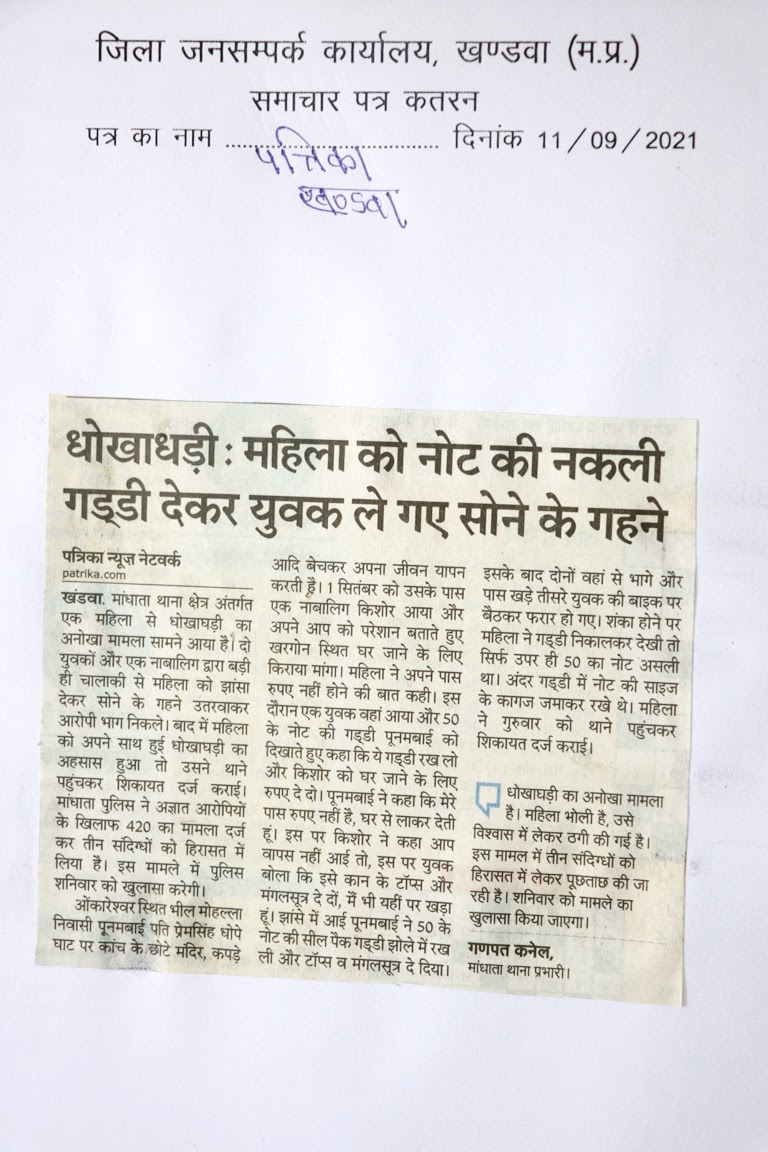 जिला जनसम्पर्क कार्यालय, खण्डवा (म.प्र.)
समाचार पत्र कतरन
पत्र का नाम ........................................ दिनांक 11/09/2021
पत्रिका
खण्डवा
धोखाधड़ी : महिला को नोट की नकली
गड्डी देकर युवक ले गए सोने के गहने
पत्रिका न्यूज़ नेटवर्क
patrika.com
खंडवा. मांधाता थाना क्षेत्र अंतर्गत
एक महिला से धोखाघड़ी का
अनोखा मामला सामने आया है। दो
युवकों और एक नाबालिग द्वारा बड़ी
ही चालाकी से महिला को झांसा
देकर सोने के गहने उतरवाकर
आरोपी भाग निकले। बाद में महिला
को अपने साथ हुई धोखाघड़ी का
अहसास हुआ तो उसने थाने
पहुंचकर शिकायत दर्ज कराई।
मांधाता पुलिस ने अज्ञात आरोपियों
के खिलाफ 420 का मामला दर्ज
कर तीन संदिग्धों को हिरासत में
लिया है। इस मामले में पुलिस
शनिवार को खुलासा करेगी।
ओंकारेश्वर स्थित भील मोहल्ला
निवासी पूनमबाई पति प्रेमसिंह धोपे
घाट पर कांच के छोटे मंदिर, कपड़े
आदि बेचकर अपना जीवन यापन
करती है। 1 सितंबर को उसके पास
एक नाबालिग किशोर आया और
अपने आप को परेशान बताते हुए
खरगोन स्थित घर जाने के लिए
किराया मांगा। महिला ने अपने पास
रुपए नहीं होने की बात कही। इस
दौरान एक युवक वहां आया और 50
के नोट की गड्डी पूनमबाई को
दिखाते हुए कहा कि ये गड्डी रख लो
और किशोर को घर जाने के लिए
रुपए दे दो। पूनमबाई ने कहा कि मेरे
पास रुपए नहीं है, घर से लाकर देती
हूं। इस पर किशोर ने कहा आप
वापस नहीं आई तो, इस पर युवक
बोला कि इसे कान के टॉप्स और
मंगलसूत्र दे दों, मैं भी यहीं पर खड़ा
हूं। झांसे में आई पूनमबाई ने 50 के
नोट की सील पैक गड्डी झोले में रख
ली और टॉप्स व मंगलसूत्र दे दिया।
इसके बाद दोनों वहां से भागे और
पास खड़े तीसरे युवक की बाइक पर
बैठकर फरार हो गए। शंका होने पर
महिला ने गड्डी निकालकर देखी तो
सिर्फ उपर ही 50 का नोट असली
था। अंदर गड्डी में नोट की साइज
के कागज जमाकर रखे थे। महिला
ने गुरुवार को थाने पहुंचकर
शिकायत दर्ज कराई।
धोखाघड़ी का अनोखा मामला
है। महिला भोली है, उसे
विश्वास में लेकर ठगी की गई है।
इस मामल में तीन संदिग्धों को
हिरासत में लेकर पूछताछ की जा
रही है। शनिवार को मामले का
खुलासा किया जाएगा।
गणपत कनेल,
मांधाता थाना प्रभारी।